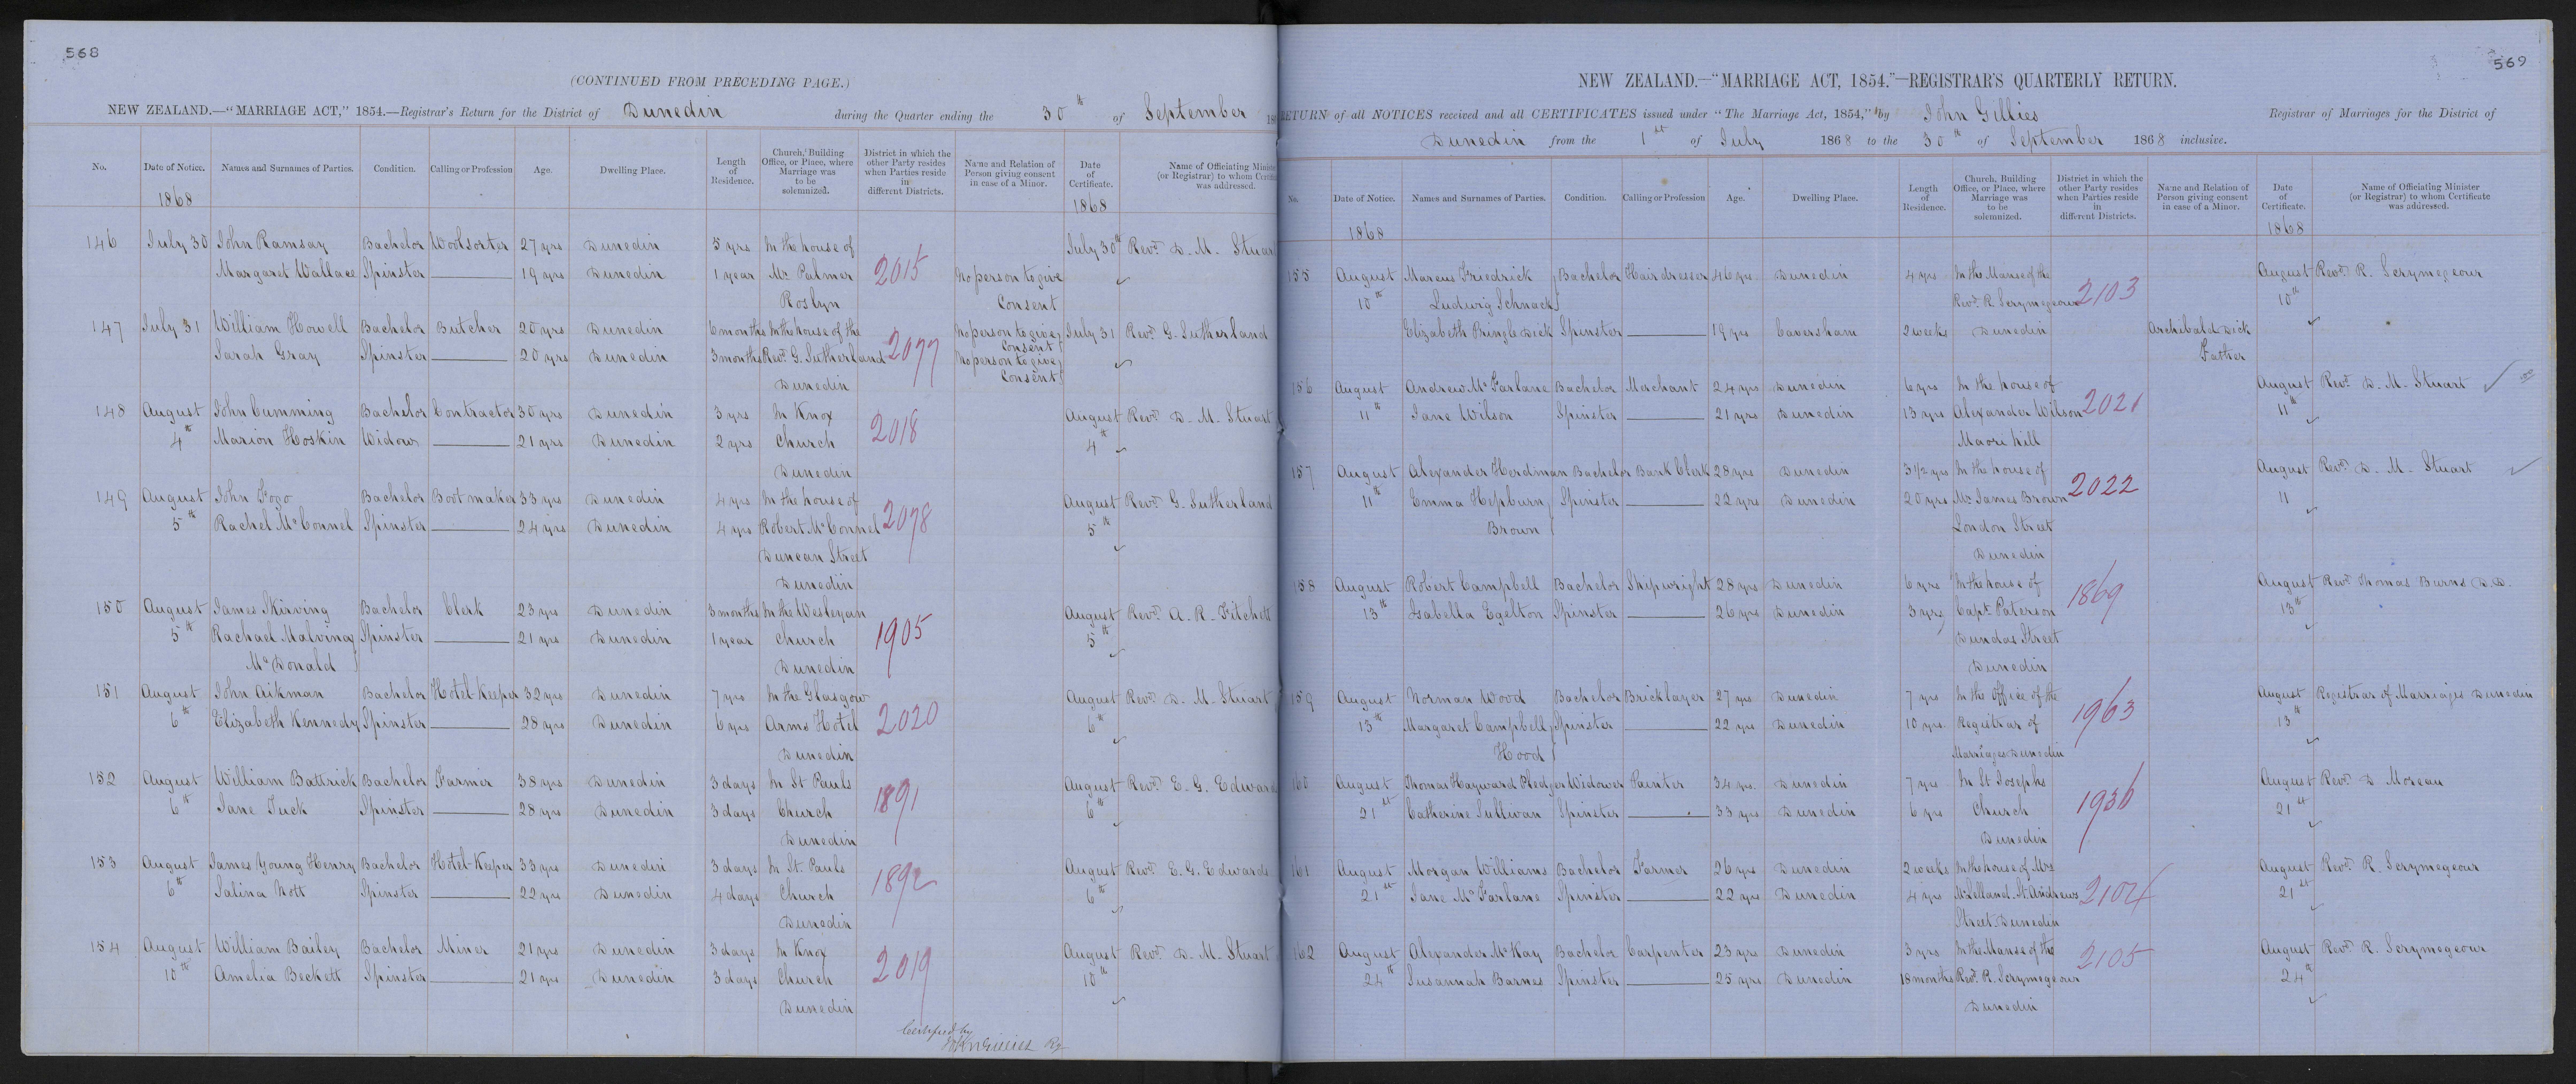 568
(CONTINUED FROM PRECEDING PAGE.)
NEW ZEALAND.—"MARRIAGE ACT," 1854.—Registrar's Return for the District of Dunedin during the Quarter ending the 30th of September
No. Date of Notice. Names and Surnames of Parties. Condition. Calling or Profession Age. Dwelling Place. Length of Residence. Church, Building Office, or Place, where Marriage was to be solemnized. District in which the other Party resides when Parties reside in different Districts. Name and Relation of Person giving consent in case of a Minor. Date of Certificate. Name of Officiating Minister (or Registrar) to whom Certificate was addressed.
1868 1868
146 July 30 John Ramsay Bachelor Woolsorter 27 yrs Dunedin 5 yrs In the house of July 30th Revd. D. M. Stuart
Margaret Wallace Spinster 19 yrs Dunedin 1 year Mr. Palmer 2015 No person to give
Roslyn Consent
147 July 31 William Howell Bachelor Butcher 20 yrs Dunedin 6 months In the house of the No person to give Consent July 31 Revd. G. Sutherland
Sarah Gray Spinster 20 yrs Dunedin 3 months Revd. G. Sutherland 2077 No person to give Consent
Dunedin
148 August John Cumming Bachelor Contractor 30 yrs Dunedin 3 yrs In Knox August Revd. D. M. Stuart
4th Marion Hoskin Widow 21 yrs Dunedin 2 yrs Church 2018 4th
Dunedin
149 August John Fogo Bachelor Bootmaker 33 yrs Dunedin 4 yrs In the house of August Revd. G. Sutherland
5th Rachel McConnel Spinster 24 yrs Dunedin 4 yrs Robert McConnel 2078 5th
Duncan Street
Dunedin
150 August James Skirving Bachelor Clerk 23 yrs Dunedin 3 months In the Wesleyan August Revd. A. R. Fitchett
5th Rachael Malvina Spinster 21 yrs Dunedin 1 year Church 1905 5th
McDonald Dunedin
151 August John Aikman Bachelor Hotel Keeper 32 yrs Dunedin 7 yrs In the Glasgow August Revd. D. M. Stuart
6th Elizabeth Kennedy Spinster 28 yrs Dunedin 6 yrs Arms Hotel 2020 6th
Dunedin
152 August William Battrick Bachelor Farmer 38 yrs Dunedin 3 days In St Pauls August Revd. E. G. Edwards
6th Jane Tuck Spinster 28 yrs Dunedin 3 days Church 1891 6th
Dunedin
153 August James Young Henry Bachelor Hotel Keeper 33 yrs Dunedin 3 days In St. Pauls August Revd. E. G. Edwards
6th Salina Nott Spinster 22 yrs Dunedin 4 days Church 1892 6th
Dunedin
154 August William Bailey Bachelor Miner 21 yrs Dunedin 3 days In Knox August Revd. D. M. Stuart
10th Amelia Beckett Spinster 21 yrs Dunedin 3 days Church 2019 10th
Dunedin
Certified by
John Gillies Rg
569
NEW ZEALAND.—"MARRIAGE ACT, 1854."—REGISTRAR'S QUARTERLY RETURN.
RETURN of all NOTICES received and all CERTIFICATES issued under "The Marriage Act, 1854," by John Gillies Registrar of Marriages for the District of
Dunedin from the 1st of July 1868 to the 30th of September 1868 inclusive.
No. Date of Notice. Names and Surnames of Parties. Condition. Calling or Profession Age. Dwelling Place. Length of Residence. Church, Building Office, or Place, where Marriage was to be solemnized. District in which the other Party resides when Parties reside in different Districts. Name and Relation of Person giving consent in case of a Minor. Date of Certificate. Name of Officiating Minister (or Registrar) to whom Certificate was addressed.
1868 1868
155 August Marcus Friedrick Bachelor Hairdresser 46 yrs Dunedin 4 yrs In the Manse of the August Revd. R. Scrymegeour
10th Ludwig Schnack Revd. R. Scrymegeour 2103 10th
Elizabeth Pringle Dick Spinster 19 yrs Caversham 2 weeks Dunedin Archibald Dick
Father
156 August Andrew McFarlane Bachelor Merchant 24 yrs Dunedin 6 yrs In the house of August Revd. D. M. Stuart
11th Jane Wilson Spinster 21 yrs Dunedin 13 yrs Alexander Wilson 2021 11th
Maori hill
157 August Alexander Herdman Bachelor Bank Clerk 28 yrs Dunedin 3 1/2 yrs In the house of August Revd. D. M. Stuart
11th Emma Hepburn Spinster 22 yrs Dunedin 20 yrs Mr James Brown 2022 11
Brown London Street
Dunedin
158 August Robert Campbell Bachelor Shipwright 28 yrs Dunedin 6 yrs In the house of August Revd. Thomas Burns D.D.
13th Isabella Egelton Spinster 26 yrs Dunedin 3 yrs Capt. Paterson 1869 13th
Dundas Street
Dunedin
159 August Norman Wood Bachelor Bricklayer 27 yrs Dunedin 7 yrs In the Office of the August Registrar of Marriages Dunedin
13th Margaret Campbell Spinster 22 yrs Dunedin 10 yrs Registrar of 1963 13th
Hood Marriages Dunedin
160 August Thomas Hayward Pledger Widower Painter 34 yrs Dunedin 7 yrs In St Josephs August Revd. D Moreau
21st Catherine Sullivan Spinster 33 yrs Dunedin 6 yrs Church 1936 21st
Dunedin
161 August Morgan Williams Bachelor Farmer 26 yrs Dunedin 2 weeks In the house of Mrs August Revd. R. Scrymegeour
21st Jane McFarlane Spinster 22 yrs Dunedin 4 yrs McLelland St. Andrews 2104 21st
Street Dunedin
162 August Alexander McKay Bachelor Carpenter 23 yrs Dunedin 3 yrs In the Manse of the August Revd. R. Scrymegeour
24th Susannah Barnes Spinster 25 yrs Dunedin 18 months Revd. R. Scrymegeour 2105 24th
Dunedin